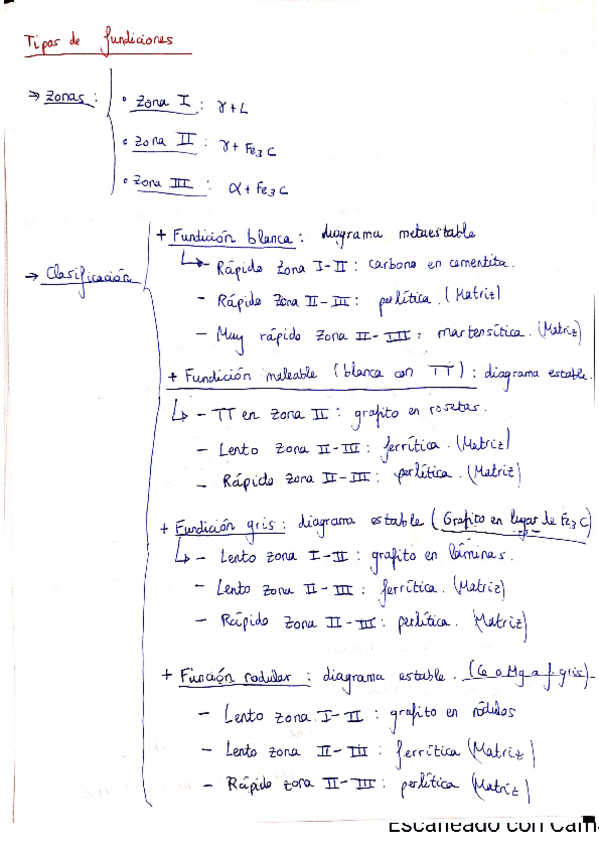 Tipos de fundiciones
→ Zonas :
• Zona I : γ + L
• Zona II : γ + Fe3C
• Zona III : α + Fe3C
→ Clasificación
+ Fundición blanca : diagrama metaestable
↳ - Rápido Zona I-II : carbono en cementita.
- Rápido Zona II-III : perlítica. (Matriz)
- Muy rápido Zona II-III : martensítica. (Matriz)
+ Fundición maleable (blanca con TT) : diagrama estable.
↳ - TT en zona II : grafito en rosetas.
- Lento Zona II-III : ferrítica. (Matriz)
- Rápido zona II-III : perlítica. (Matriz)
+ Fundición gris : diagrama estable (Grafito en lugar de Fe3C)
↳ - Lento zona I-II : grafito en láminas.
- Lento zona II-III : ferrítica. (Matriz)
- Rápido zona II-III : perlítica. (Matriz)
+ Función nodular : diagrama estable. (Ce o Mg a f. gris)
- Lento zona I-II : grafito en nódulos
- Lento zona II-III : ferrítica (Matriz)
- Rápido zona II-III : perlítica (Matriz)
Escaneado con Cam